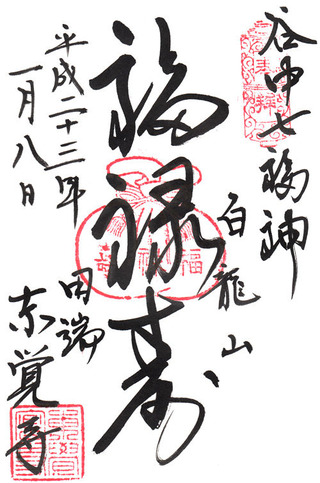 谷中七福神
白龍山
福禄寿
田端
東覚寺
平成二十三年
一月八日